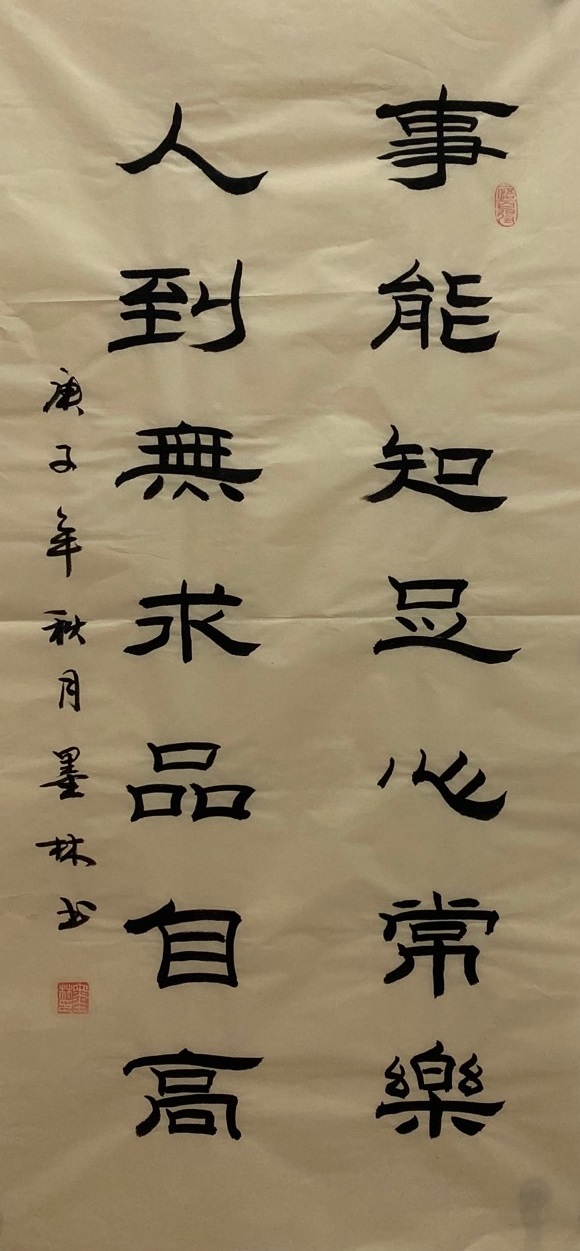 事能知足心常樂
人到無求品自高
庚子年秋月墨林书